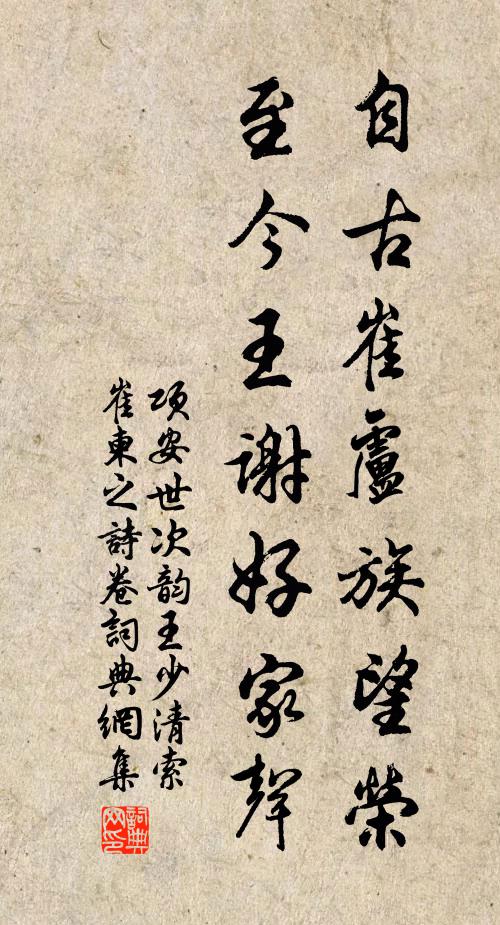 自古崔盧族望榮
至今王謝好家聲
項安世次韵王少清索
崔東之詩卷詞典網集
詞典网印